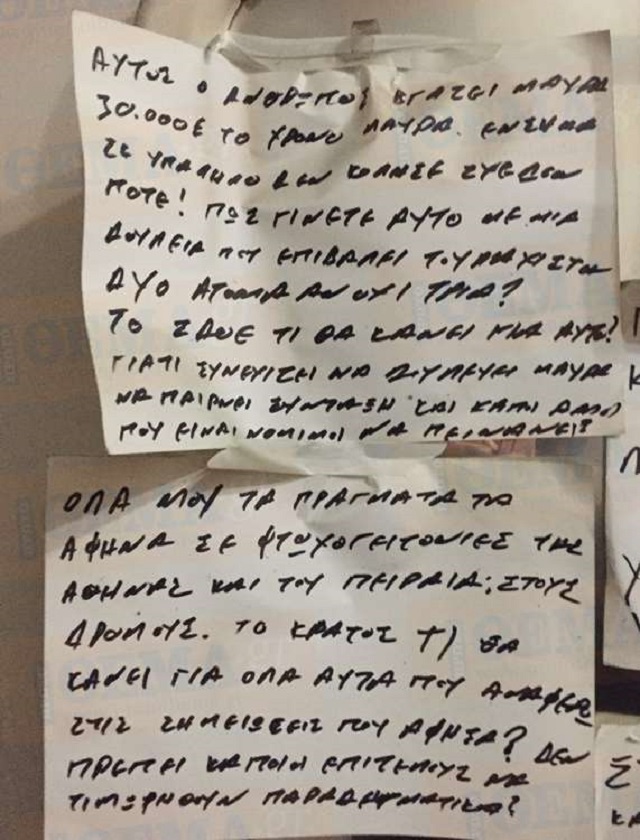 ΑΥΤΟΣ Ο ΑΝΘΡΩΠΟΣ ΒΓΑΖΕΙ ΜΑΥΡΑ
30.000€ ΤΟ ΧΡΟΝΟ ΜΑΥΡΑ. ΕΝΣΗΜΑ
ΣΕ ΥΠΑΛΗΛΟ ΔΕΝ ΚΟΛΗΣΕ ΣΧΕΔΟΝ
ΠΟΤΕ! ΠΩΣ ΓΙΝΕΤΕ ΑΥΤΟ ΜΕ ΜΙΑ
ΔΟΥΛΕΙΑ ΠΟΥ ΕΠΙΒΑΛΕΙ ΤΟΥΛΑΧΙΣΤΟΝ
ΔΥΟ ΑΤΟΜΑ ΑΝ ΟΧΙ ΤΡΙΑ?
ΤΟ ΣΔΟΕ ΤΙ ΘΑ ΚΑΝΕΙ ΓΙΑ ΑΥΤΟ?
ΓΙΑΤΙ ΣΥΝΕΧΙΖΕΙ ΝΑ ΔΟΥΛΕΥΕΙ ΜΑΥΡΑ
ΝΑ ΠΑΙΡΝΕΙ ΣΥΝΤΑΞΗ ΚΑΙ ΚΑΠΟΙΟΙ
ΠΟΥ ΕΙΝΑΙ ΝΟΜΙΜΟΙ ΝΑ ΠΕΙΝΑΝΕ!?
ΟΛΑ ΜΟΥ ΤΑ ΠΡΑΓΜΑΤΑ ΤΑ
ΑΦΗΝΑ ΣΕ ΦΤΩΧΟΓΕΙΤΟΝΙΕΣ ΤΗΣ
ΑΘΗΝΑΣ ΚΑΙ ΤΟΥ ΠΕΙΡΑΙΑ; ΣΤΟΥΣ
ΔΡΟΜΟΥΣ. ΤΟ ΚΡΑΤΟΣ ΤΙ ΘΑ
ΚΑΝΕΙ ΓΙΑ ΟΛΑ ΑΥΤΑ ΠΟΥ ΑΝΑΦΕΡΩ
ΣΤΙΣ ΣΗΜΕΙΩΣΕΙΣ ΠΟΥ ΑΦΗΣΑ? ΔΕΝ
ΠΡΕΠΕΙ ΚΑΠΟΙΟΙ ΕΠΙΤΕΛΟΥΣ ΝΑ
ΤΙΜΩΡΗΘΟΥΝ ΠΑΡΑΔΕΙΓΜΑΤΙΚΑ?